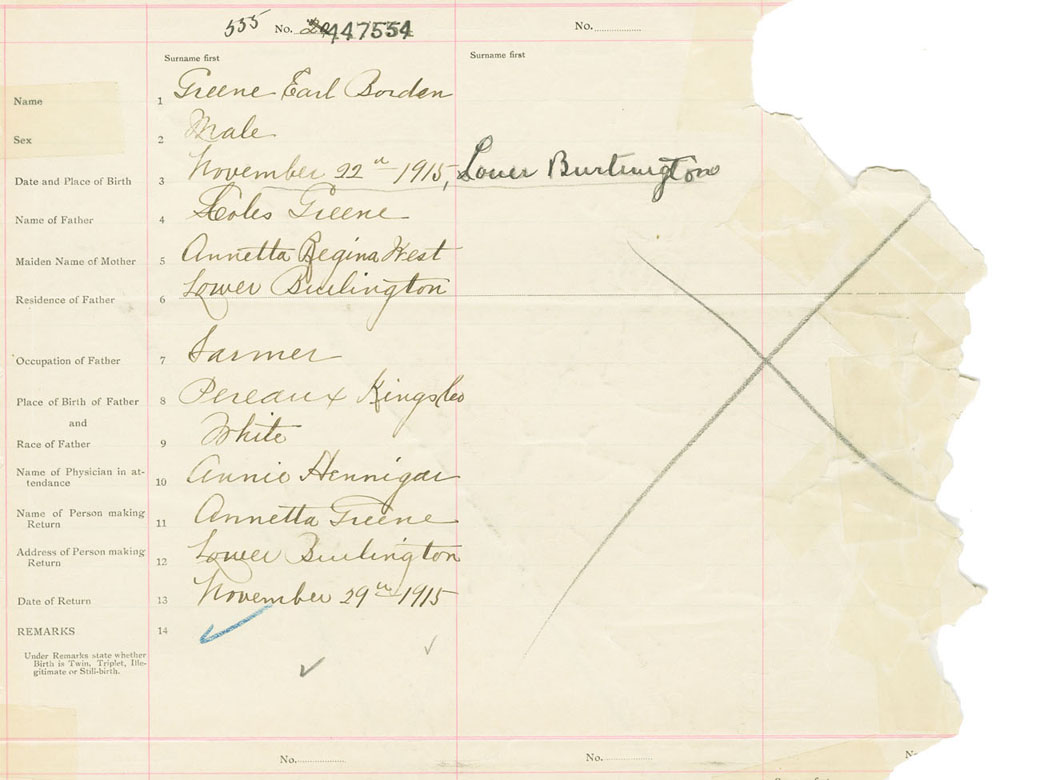 555 No. 447554 No.
Surname first Surname first
Name 1 Greene Earl Borden
Sex 2 Male
Date and Place of Birth 3 November 22ⁿ 1915, Lower Burlington
Name of Father 4 Coles Greene
Maiden Name of Mother 5 Annetta Regina West
Residence of Father 6 Lower Burlington
Occupation of Father 7 Farmer
Place of Birth of Father 8 Pereaux Kings Co
and
Race of Father 9 White
Name of Physician in at-
tendance 10 Annie Hennigar
Name of Person making
Return 11 Annetta Greene
Address of Person making
Return 12 Lower Burlington
Date of Return 13 November 29th 1915
REMARKS 14
Under Remarks state whether
Birth is Twin, Triplet, Ille-
gitimate or Still-birth.
No. No.